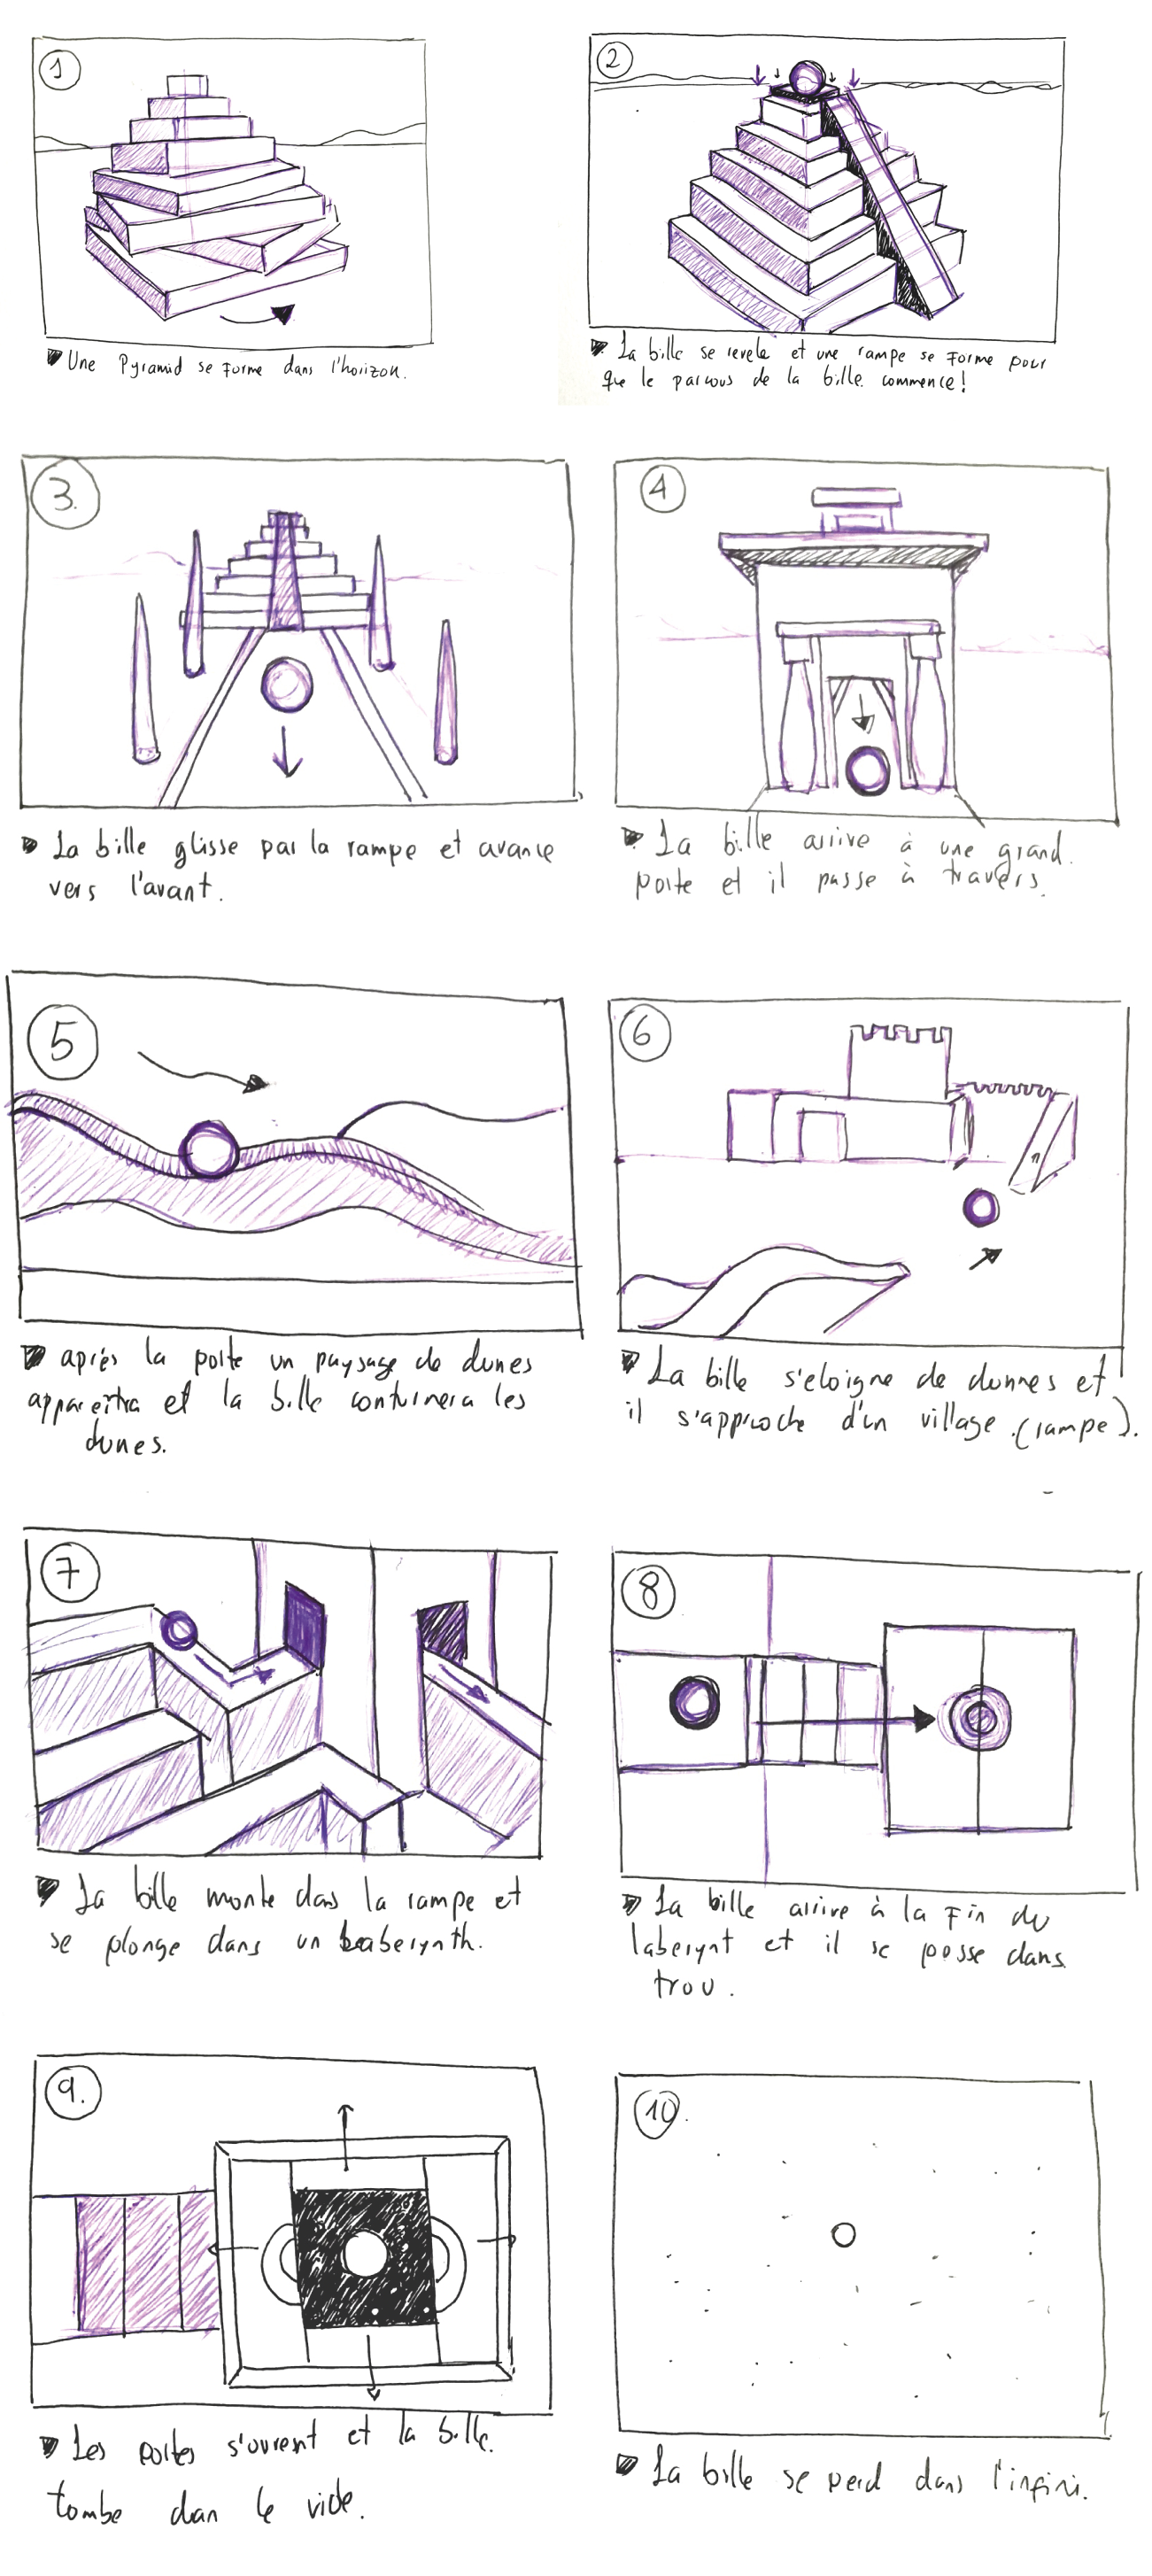 1
Une Pyramid se forme dans l'horizon.
2
La bille se revele et une rampe se forme pour
que le parcous de la bille commence!
3.
La bille glisse par la rampe et avance
vers l'avant.
4
La bille arrive à une grand
porte et il passe à travers.
5
après la porte un paysage de dunes
apparaitra et la bille contuinera les
dunes.
6
La bille s'eloigne de dunnes et
il s'approche d'un village (rampe).
7
La bille monte dans la rampe et
se plonge dans un laberynth.
8
La bille arrive à la fin du
laberynt et il se posse dans
trou.
9.
Les portes s'ouvrent et la bille.
tombe dan le vide.
10.
La bille se perd dans l'infini.